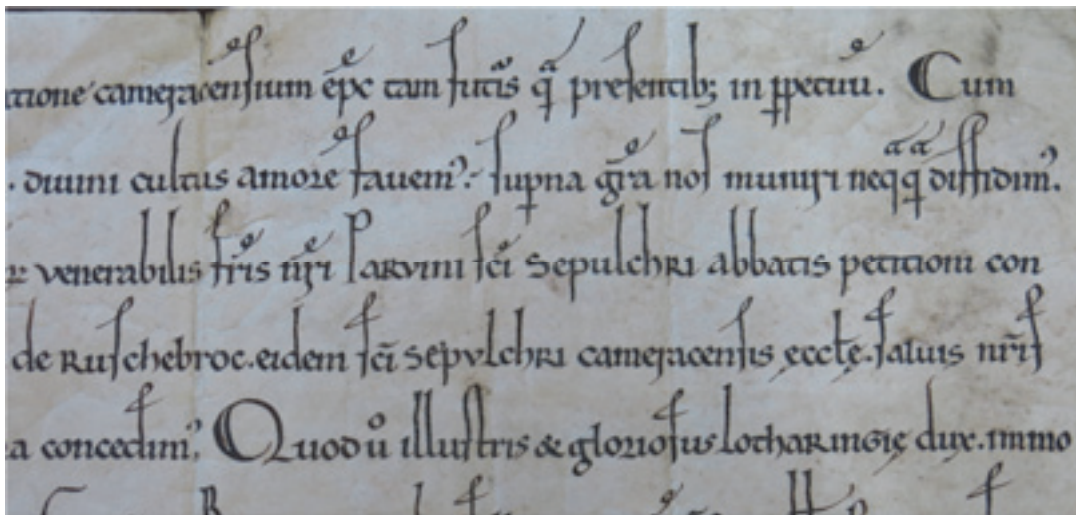 cameracensium ep̄c tam futuris q̄ presentib; in ppetuū. Cum
. diuini cultus amore fauem᾿: supna gr̄a nos muniri neqq̄ diffidim᾿.
venerabilis fr̄is nr̄i Parvini sc̄i Sepulchri abbatis petitioni con
de Ruschebroc. eidem sc̄i Sepulchri cameracensis ęccłę. saluis nr̄is
a concedim᾿. Quod ů illustris & gloriosus Lotharingię dux. immo